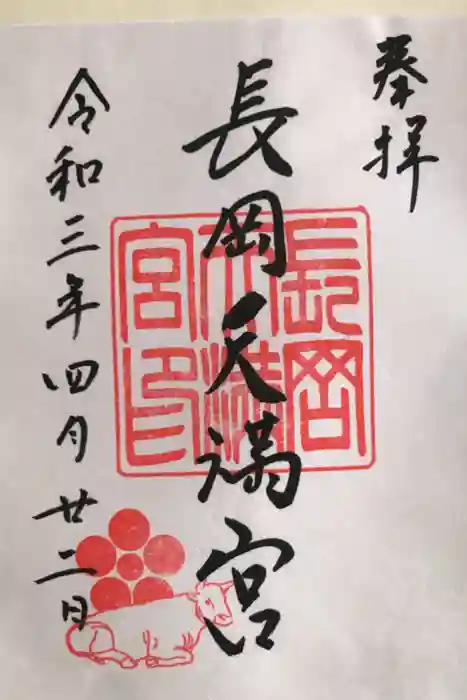 奉拝
長岡天満宮
長岡天満宮印
令和三年四月廿二日